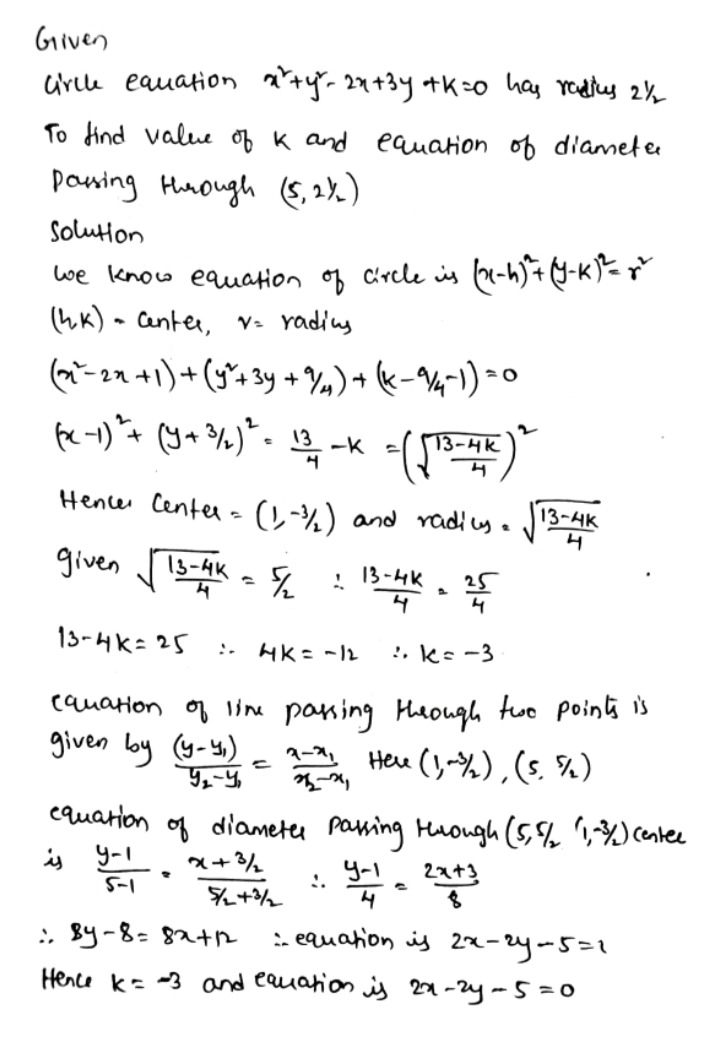 Given
Circle equation x²+y²- 2x+3y +k=0 has radius 2½
To find value of k and equation of diameter
passing through (5, 2½)
Solution
We know equation of circle is (x-h)²+(y-k)²= r²
(h,k) - Center, r= radius
(x²-2x+1)+(y²+3y+9/4)+(k-9/4-1)=0
(x-1)²+(y+3/2)² = 13/4 -k =(√(13-4k/4))²
Hence Center = (1,-3/2) and radius = √(13-4k/4)
given √(13-4k/4) = 5/2 ∴ 13-4k/4 = 25/4
13-4k=25 ∴ 4k=-12 ∴ k=-3
equation of line passing through two points is
given by (y-y₁)/y₂-y₁ = x-x₁/x₂-x₁ Here (1,-3/2), (5, 5/2)
equation of diameter passing through (5,5/2 (1,-3/2) center
is y-1/5-1 = x+3/2/5/2+3/2 ∴ y-1/4 = 2x+3/8
∴ 8y-8= 8x+12 ∴ equation is 2x-2y-5=
Hence k= -3 and equation is 2x-2y-5=0